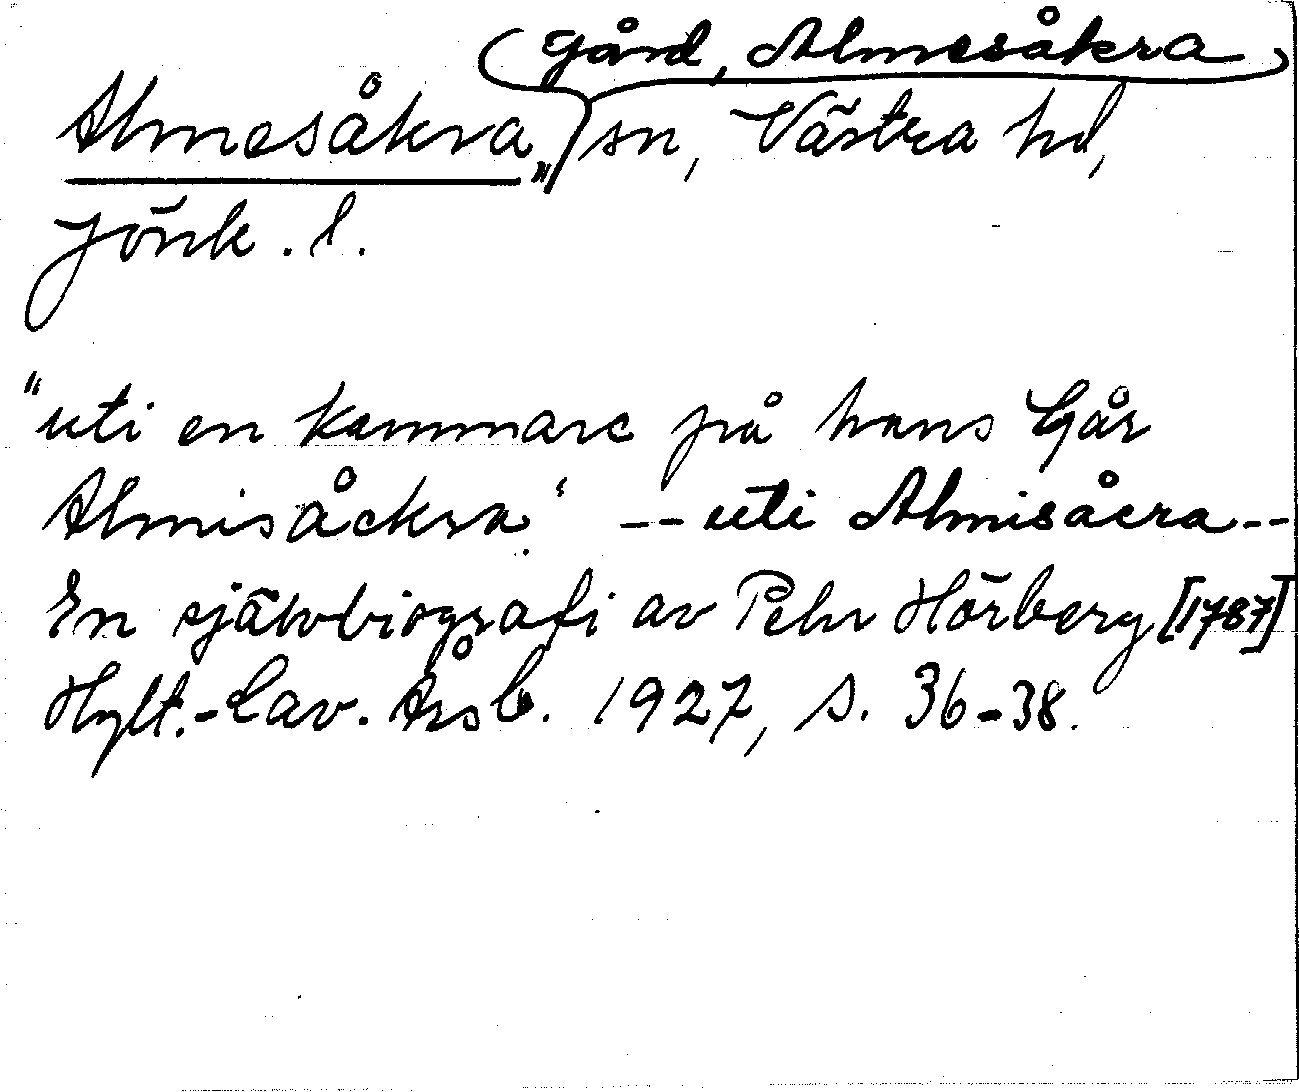 gård, Almesåkra
Almesåkra, sn, Västra hd,
Jönk. l.
"uti en kammare på hans Går
Almisåckra" -- uti Almisåcra --
En självbiografi av Pehr Hörberg [1787]
Hylt.-Cav. Årsb. 1927, s. 36-38.